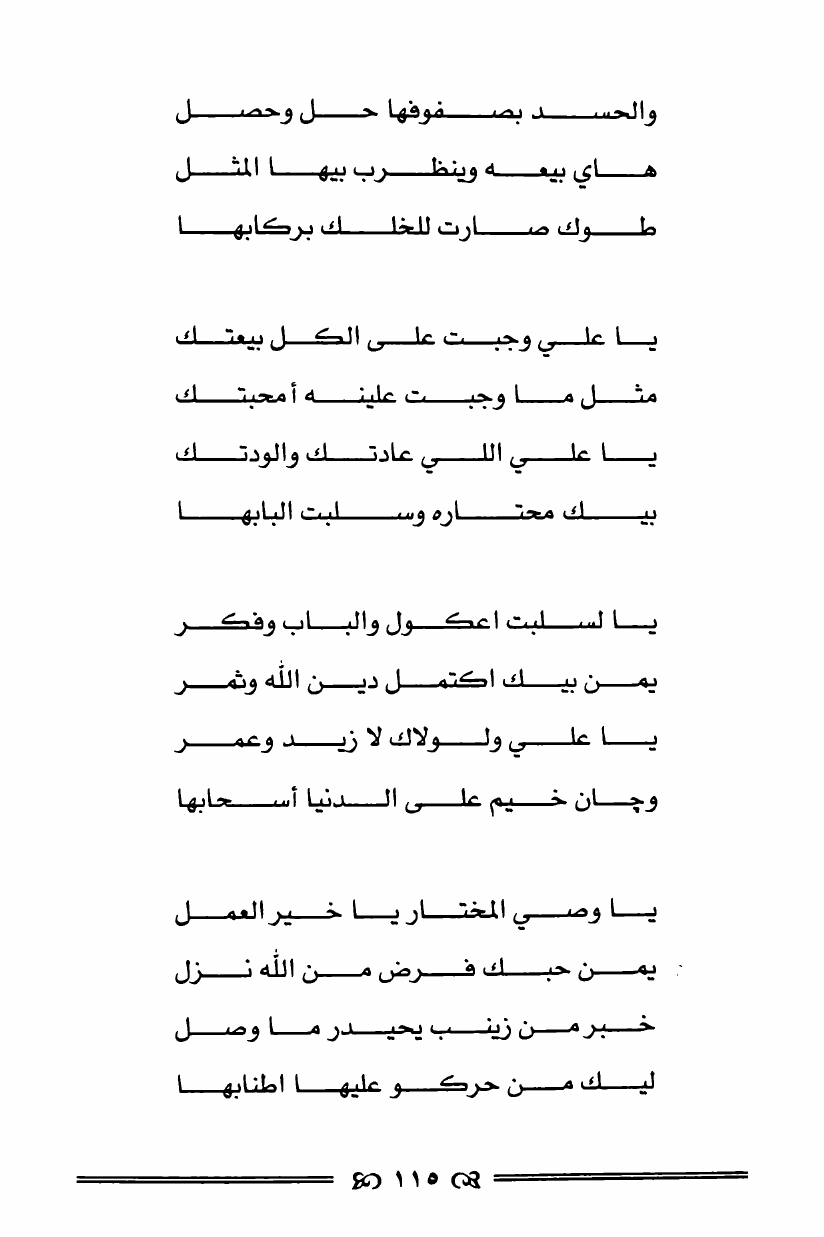 والحسد بصفوفها حل وحصل
هاي بيعه وينظرب بيها المثل
طوك صارت للخلك بركابها
يا علي وجبت على الكل بيعتك
مثل ما وجبت علينه أمحبتك
يا علي اللي عادتك والودتك
بيك محتاره وسلبت البابها
يا لسلبت اعكول والباب وفكر
يمن بيك اكتمل دين الله وثمر
يا علي ولولاك لا زيد وعمر
وچان خيم على الدنيا أسحابها
يا وصي المختار يا خير العمل
يمن حبك فرض من الله نزل
خبر من زينب يحيدر ما وصل
ليك من حركو عليها اطنابها
١١٥